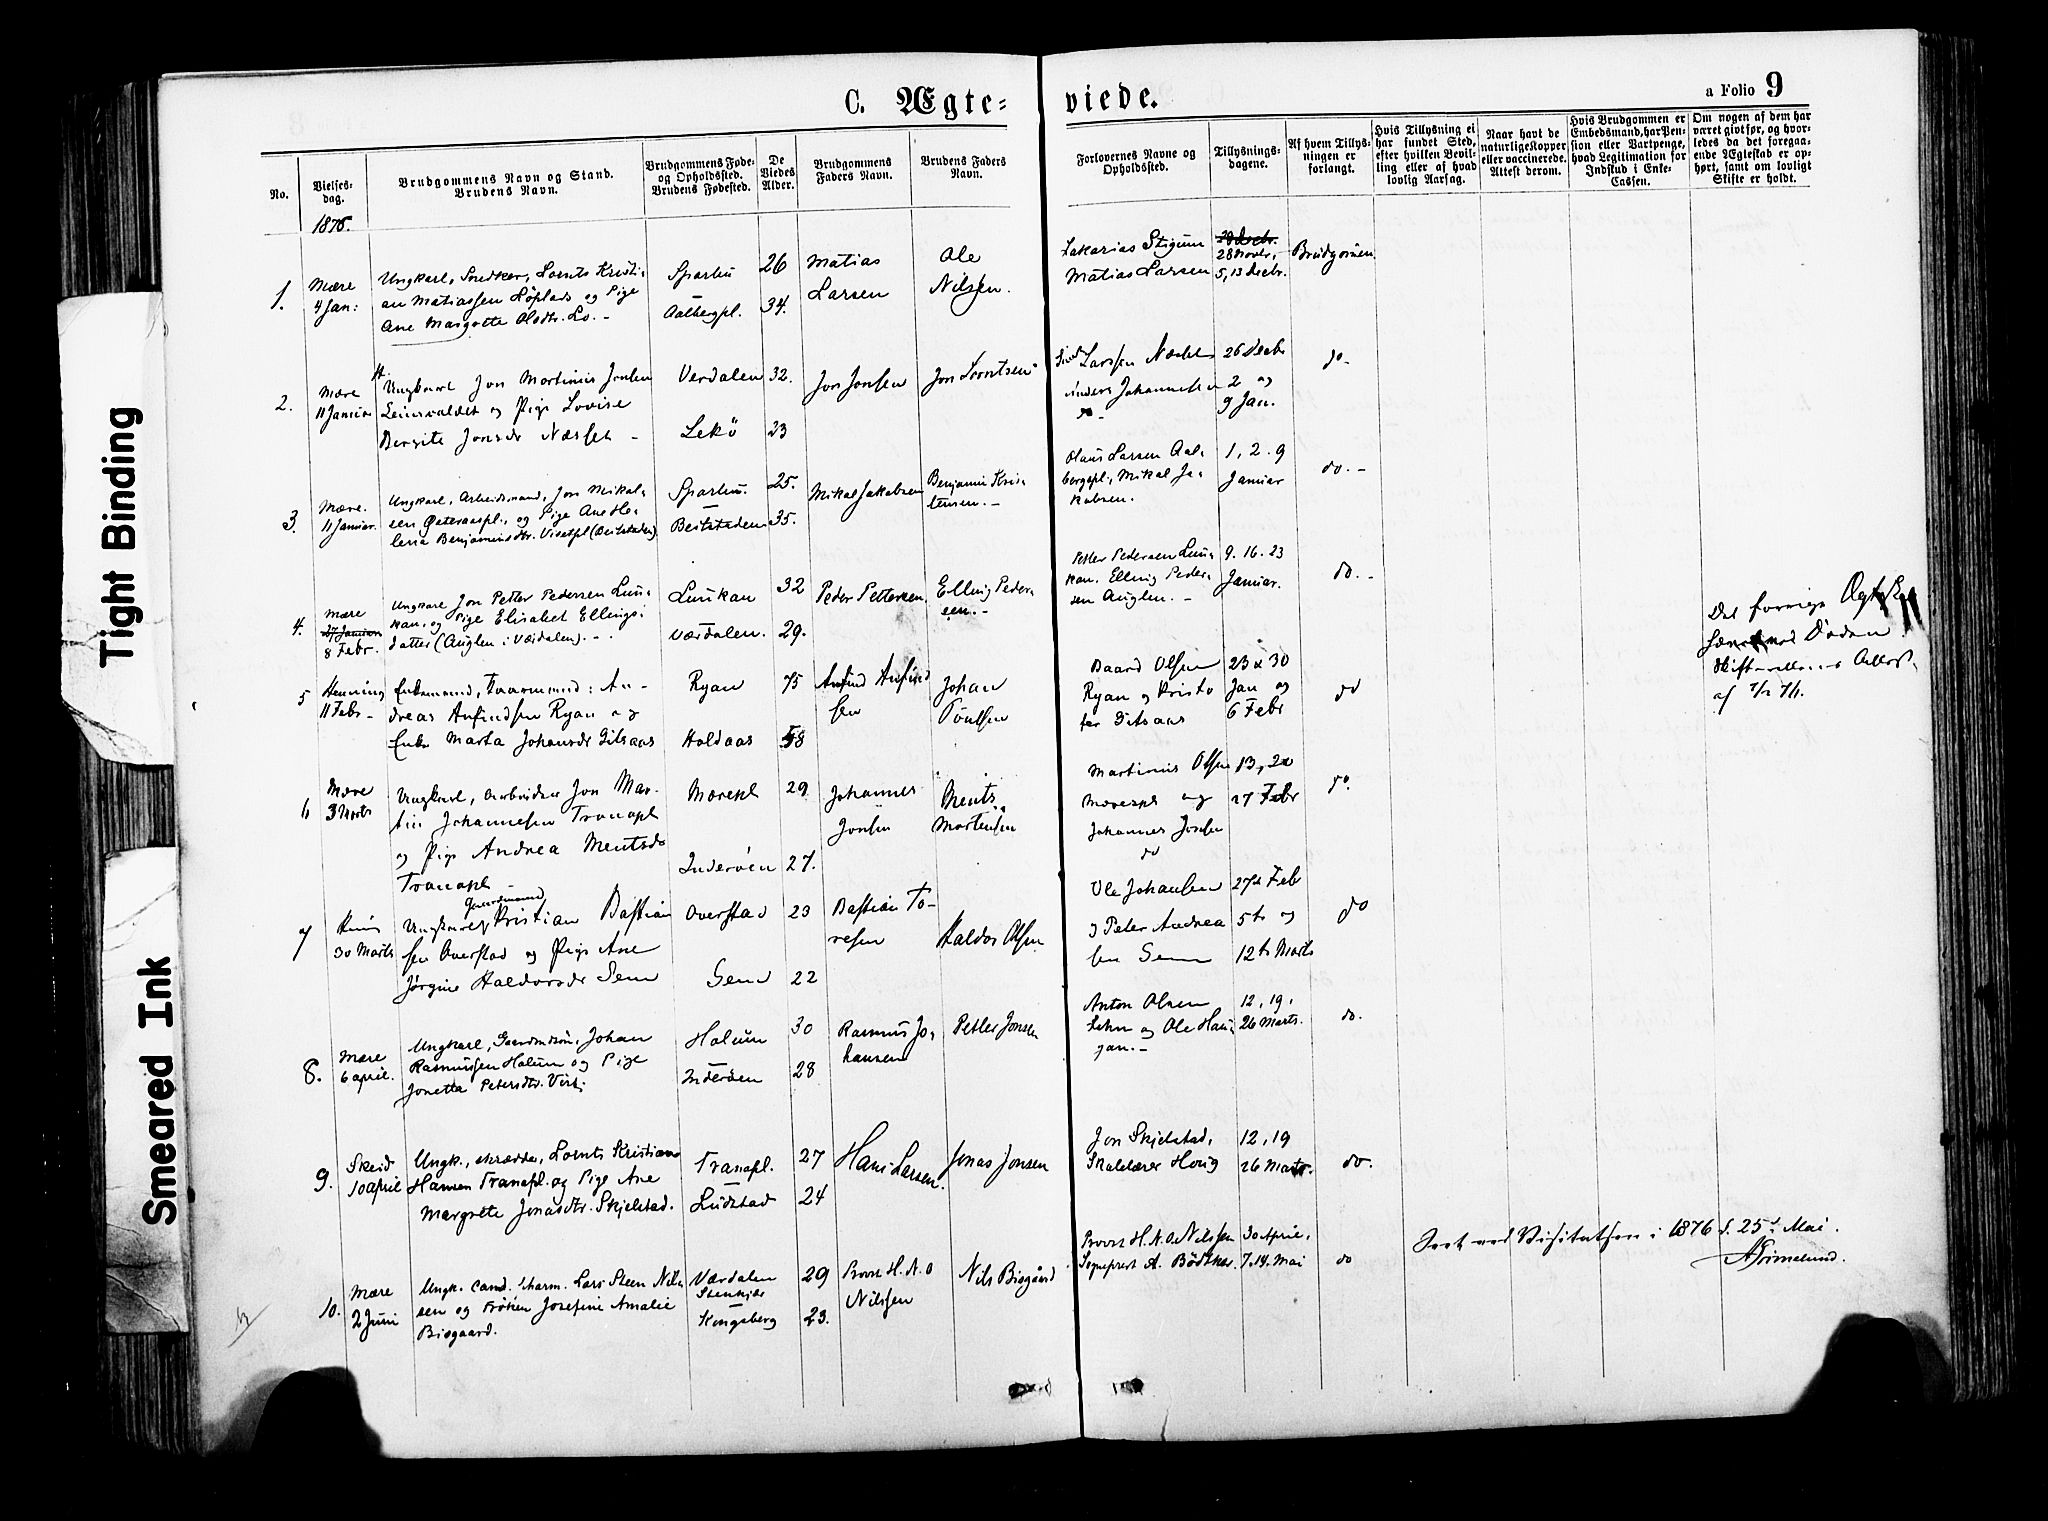 C. Ægte=
viede.
a Folio 9
No.
Vielses-
dag.
Brudgommens Navn og Stand.
Brudens Navn.
Brudgommens Føde-
og Opholdssted.
Brudens Fødested.
De
Viedes
Alder.
Brudgommens
Faders Navn.
Brudens Faders
Navn.
Forlovernes Navne og
Opholdssted.
Tillysnings-
dagene.
Af hvem Tillys-
ningen er
forlangt.
Hvis Tillysning ei
har fundet Sted,
efter hvilken Bevil-
ling eller af hvad
lovlig Aarsag.
Naar havt de
naturlige Kopper
eller vaccinerede.
Attest derom.
Hvis Brudgommen er
Embedsmand, har Pen-
sion eller Vartpenge,
hvad Legitimation for
Indskud i Enke-
Cassen.
Om nogen af dem har
været gift før, og hvor-
ledes da det foregaa-
ende Ægteskab er op-
hørt, samt om lovligt
Skifte er holdt.
1875.
1.
Mære
4 Jan:
Ungkarl, Snedker, Lornts Kristi-
an Matiassen Löplads og Pige
Ane Margrette Olsdtr. Lö. -
Sparbu
Aalbergpl.
26
34.
Matias
Larsen
Ole
Nilsen.
Zakarias Stigum
Matias Larsen
28 Novbr,
5, 13 Decbr.
Brudgommen
2.
Mære
11 Januar
Ungkarl Jon Martinus Jonsen
Leinsvaldet og Pige Lovise
Bergite Jonsdr Næsset -
Verdalen
Lekö
32.
23
Jon Jonsen
Jon Lorntsen
Larsen Næsset
Anders Johannesen
do -
26 Decbr
2 og
9 Jan.
do -
3.
Mære.
11 Januar.
Ungkarl, Arbeidsmand, Jon Mikal-
sen Österaaspl., og Pige Ane He-
lena Benjaminsdtr. Visetpl (Beitstaden)
Sparbu.
Beitstaden
25.
35.
Mikal Jakobsen
Benjamin Kris-
tensen. -
Olaus Larsen Aal-
bergspl., Mikal Ja-
kobsen.
1, 2. 9
Januar
do. -
4.
Mære
27 Januar
8 Febr.
Ungkarl Jon Petter Pedersen Lun-
kan, og Pige Elisabet Ellings-
datter (Auglen i Værdalen). -
Lunkan
Værdalen.
32
29.
Peder Pettersen
Elling Peder-
sen. -
Petter Pedersen Lun-
kan. Elling Peder-
sen Auglen. -
9. 16. 23
Januar.
do. -
5
Henning
11 Febr -
Enkemand, Gaarmand: An-
dreas Anfindsen Ryan og
Enke Marta Johansdr Gilsaas
Ryan
Haldaas
75
58
Anfind Anfind
sen
Johan
Töntsen
Baard Olsen
Ryan og Kristo
fer Gilsaas
23 & 30
Jan og
6 Febr
do
Det forrige Ægteska
ved Döden
6
Mære
3 Marts
Ungkarl, Arbeider Jon Mar-
tin Johannesen Tranapl
og Pige Andrea Mentsdr
Tranapl -
Mærepl
Inderöen
29
27.
Johannes
Jonsen
Ments
Mortensen
Martinus Olsen
Mærespl og
Johannes Jonsen
do
13, 20
27 Febr
do.
7
30 Marts
Gaardmand
Ungkarl Kristian Bastian
sen Överstad og Pige Ane
Jørgine Haldorsdr Sem
Överstad
Sem
23
22
Bastian To-
resen
Haldor Olsen
Ole Johansen
og Peter Andrea
sen Sem
27de Feb
5te og
12te Marts
do
8.
Mære
6 April.
Ungkarl, Gaardmdsön, Johan
Rasmussen Halum og Pige
Jonetta Petersdtr. Vist.
Halum
Inderöen
30
28
Rasmus Jo-
hansen
Petter Jonsen
Anton Olsen
og Ole Hau-
gan. -
12, 19,
26 Marts.
do.
9.
Skeid
10 April
Ungk., skrædder, Lornts Kristian
Hansen Tranapl. og Pige Ane
Margrete Jonasdtr. Skjelstad.
Tranapl.
Ludstad
27
24
Hans Larsen.
Jonas Jonsen
Jon Skjelstad,
Skolelærer Houg
12, 19
26 Marts.
do.
10.
Mære
2 Juni
Ungk. cand. pharm. Lars Steen Nils-
sen og Fröken Josefine Amalie
Bisgaard.
Værdalen
Stenkjær
Kongsberg
29
23.
Provst H. A. O
Nilssen
Nils Bisgaard
Provst H. A. O. Nilssen
Sogneprest A. Bödtker
30 April,
7. 14. Mai
do
Seet ved Visitatsen i 1876 d. 25de Mai.
AGrimelund.
Tight Binding
Smeared Ink